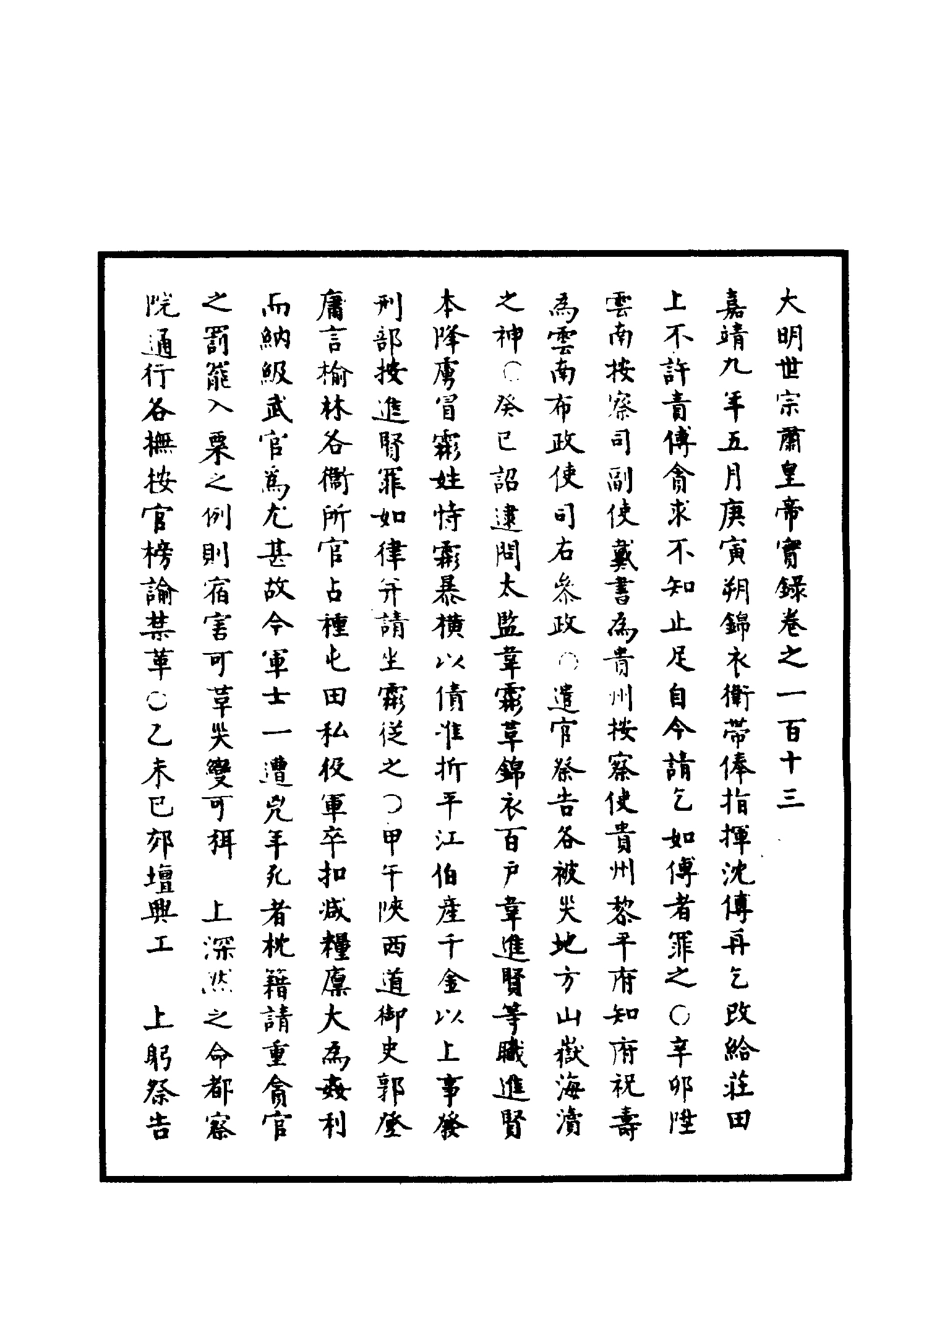 大明世宗肅皇帝實錄卷之一百十三
嘉靖九年五月庚寅朔錦衣衛帶俸指揮沈傳再乞改給莊田
上不許責傳貪求不知止足自今請乞如傳者罪之○辛卯陞
雲南按察司副使戴書為貴州按察使貴州黎平府知府祝壽
為雲南布政使司右參政○遣官祭告各被災地方山嶽海瀆
之神○癸巳詔逮問太監韋霦革錦衣百戶韋進賢等職進賢
本降虜冒霦姓恃霦暴橫以債准折平江伯產千金以上事發
刑部按進賢罪如律并請坐霦從之○甲午陝西道御史郭登
庸言榆林各衛所官占種屯田私役軍卒扣減糧廩大為姦利
而納級武官爲尤甚故今軍士一遭兇年死者枕籍請重貪官
之罰罷入粟之例則宿害可革災變可弭　上深然之命都察
院通行各撫按官榜諭禁革○乙未巳郊壇興工　上躬祭告